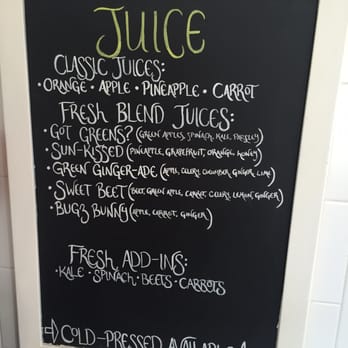 JUICE
CLASSIC JUICES:
• ORANGE • APPLE • PINEAPPLE • CARROT
FRESH BLEND JUICES:
• GOT GREENS? (GREEN APPLES, SPINACH, KALE, PARSLEY)
• SUN-KISSED (PINEAPPLE, GRAPEFRUIT, ORANGE, HONEY)
• GREEN GINGER-ADE (APPLE, CELERY, CUCUMBER, GINGER, LIME)
• SWEET BEET (BEET, GREEN APPLE, CARROT, CELERY, LEMON, GINGER)
• BUGZ BUNNY (APPLE, CARROT, GINGER)
FRESH ADD-INS:
• KALE • SPINACH • BEETS • CARROTS
COLD-PRESSED